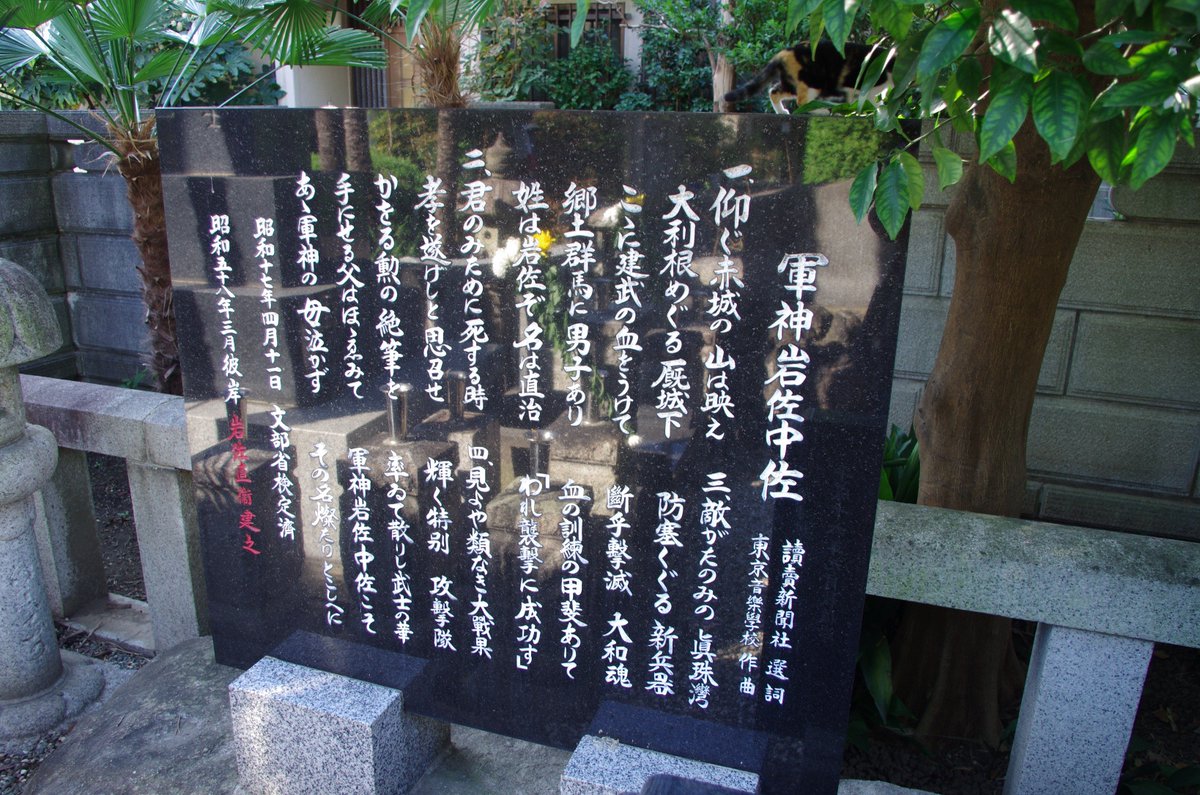 軍神岩佐中佐
讀賣新聞社 選詞
東京音樂學校 作曲
一、仰ぐ赤城の山は映え
大利根めぐる厩城下
こゝに建武の血をうけて
郷土群馬に男子あり
姓は岩佐ぞ名は直治
二、君のみために死する時
孝を遂げしと思召せ
かをる勲の絶筆を
手にせる父はほゝゑみて
あゝ軍神の母泣かず
三、敵がたのみの眞珠灣
防塞くぐる新兵器
斷乎撃滅 大和魂
血の訓練の甲斐ありて
「われ襲撃に成功す」
四、見よや類なき大戰果
輝く特別 攻撃隊
率ゐて散りし武士の華
軍神岩佐中佐こそ
その名燦たりとこしへに
昭和十七年四月十一日 文部省検定濟
昭和五十八年三月彼岸 岩佐直衛建之